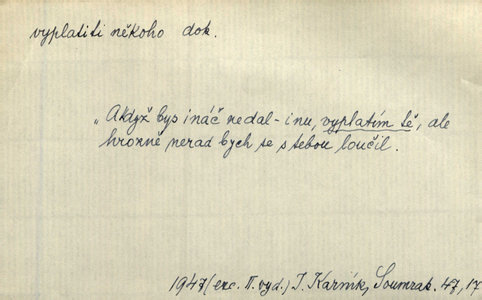 vyplatiti někoho dok.
„A když bys ináč nedal - inu, vyplatím tě, ale
hrozně nerad bych se s tebou loučil.
1947 (exc. II. vyd.) J. Karník, Soumrak. 47, 17